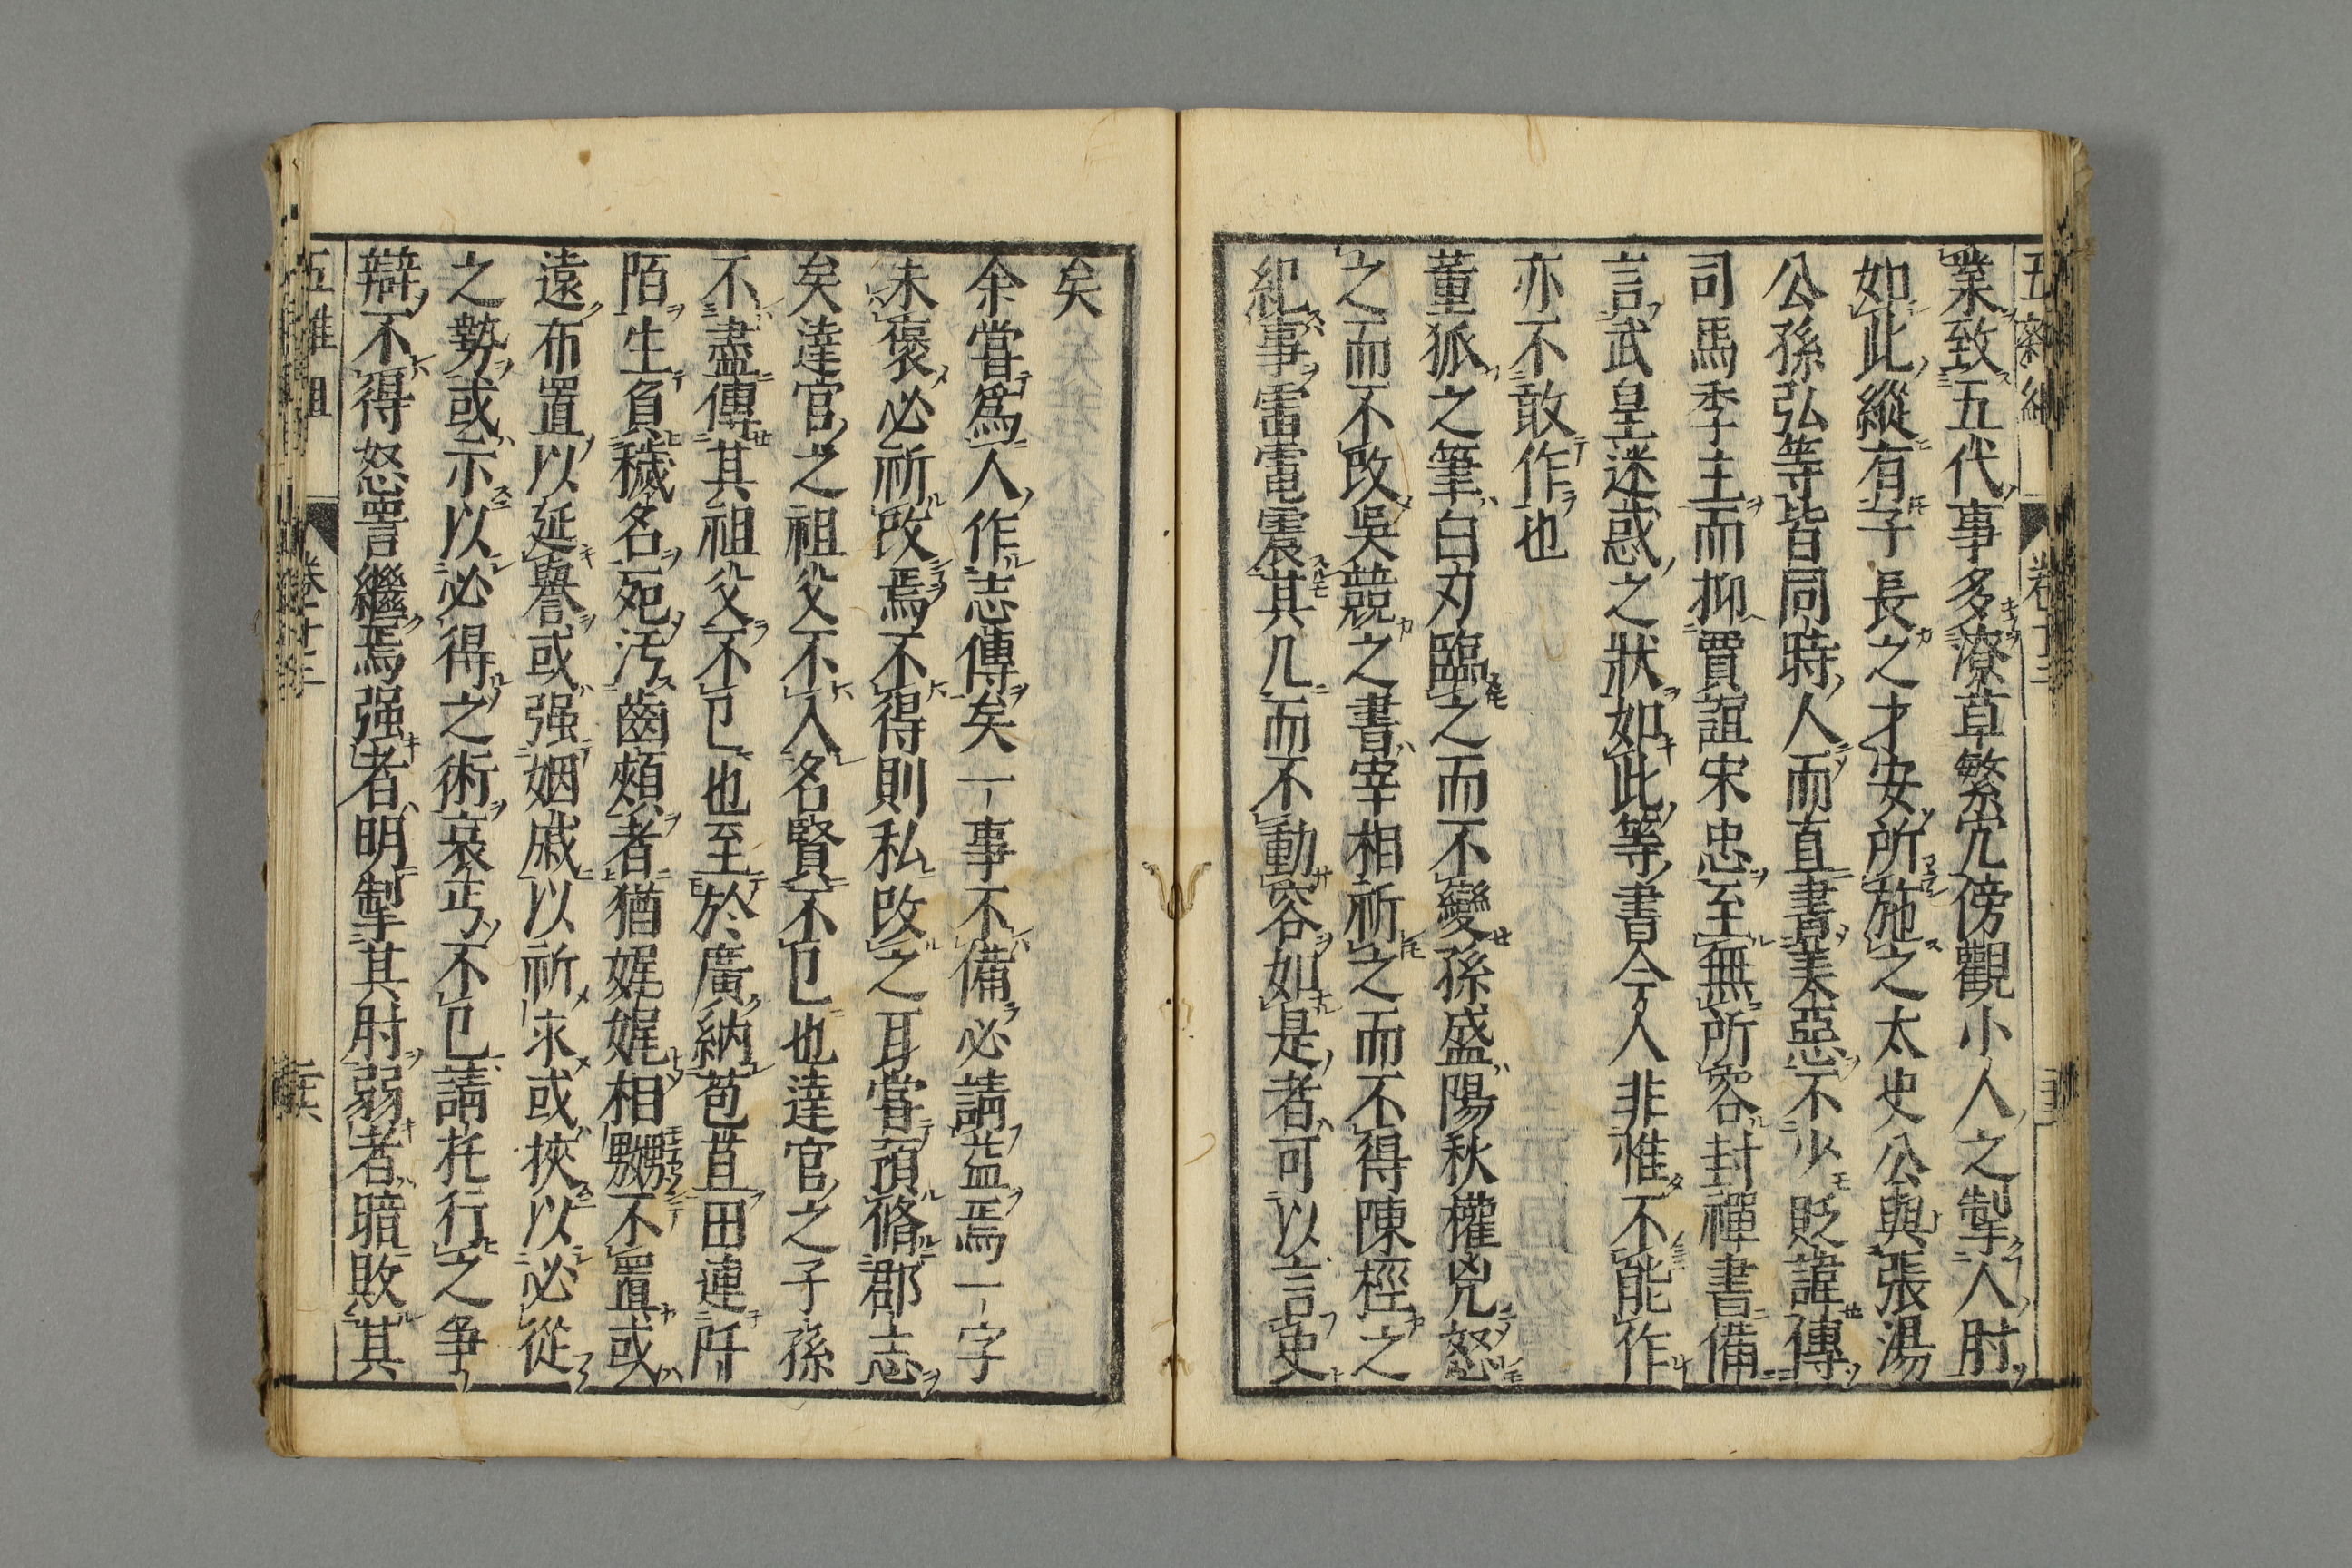 業致五代事多潦草繁冗傍觀小人之掣人肘
如此縱有子長之才安所施之太史公與張湯
公孫弘等皆同時人而直書美惡不少貶諱傳
司馬季主而抑賈誼宋忠至無所容封禪書備
言武皇迷惑之狀如此等書今人非惟不能作
亦不敢作也
董狐之筆白刃臨之而不變孫盛陽秋權兇怒
之而不改吳兢之書宰相祈之而不得陳桱之
紀事雷電震其几而不動容如是者可以言史
矣
余嘗爲人作志傳矣一事不備必請益焉一字
未褒必祈改焉不得則私改之耳嘗預脩郡志
矣達官之祖父不入名賢不已也達官之子孫
不盡傳其祖父不已也至於廣納苞苴田連阡
陌生負穢名死汚齒頰者猶娓娓相嬲不置或
遠布置以延譽或强姻戚以祈求或挾以必從
之勢或示以必得之術哀丐不已請托行之爭
辯不得怒詈繼焉强者明掣其肘弱者暗敗其
五雜組
卷十三